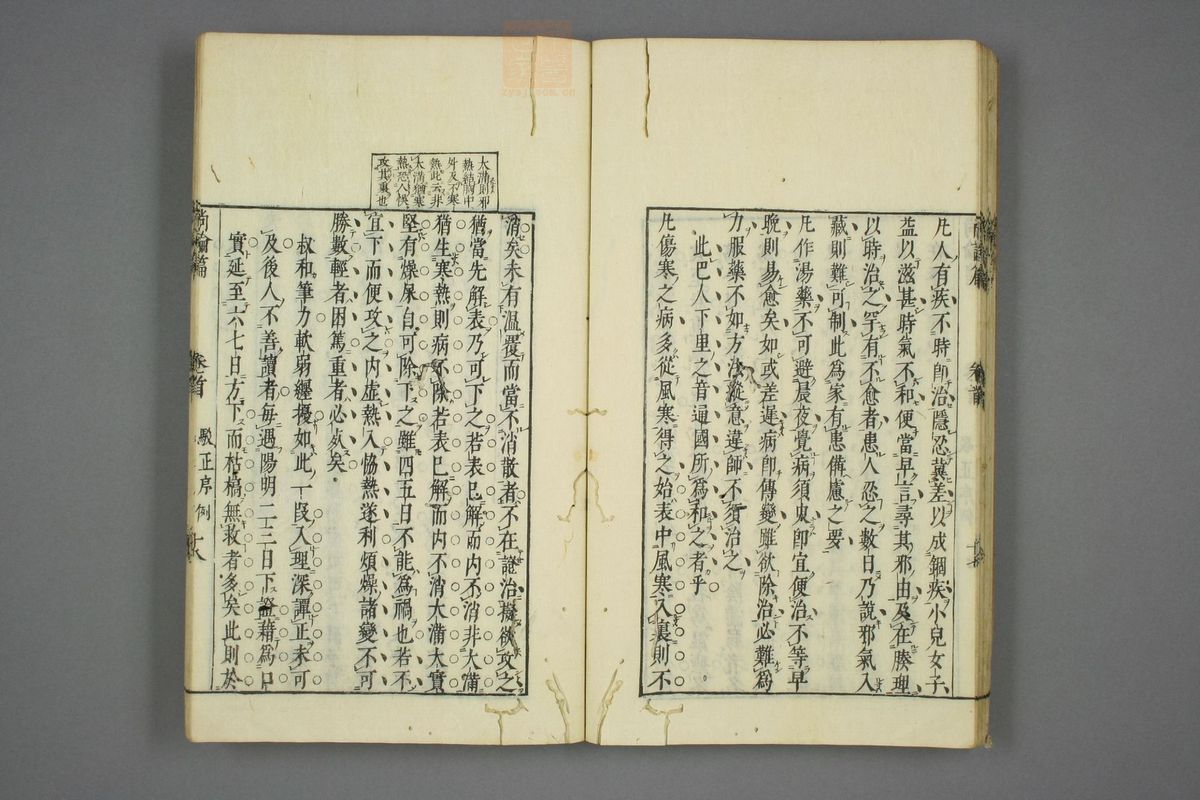 凡人有疾不時即治隱忍冀差以成錮疾小兒女子
益以滋甚時氣不和便當早言尋其邪由及在腠理
以時治之罕有不愈者患人忍之數日乃說邪氣入
藏則難可制此為家有患備慮之要
凡作湯藥不可避晨夜覺病須臾即宜便治不等早
晚則易愈矣如或差遲病即傳變雖欲除治必難為
力服藥不如方法縱意違師不須治之
此巴人下里之音遍國所為和之者乎
凡傷寒之病多從風寒得之始表中風寒入裏則不
消矣未有溫覆而當不消散者不在證治擬欲攻之
猶當先解表乃可下之若表已解而內不消非大滿
猶生寒熱則病不除若表已解而內不消大滿大實
堅有燥屎自可除下之雖四五日不能為禍也若不
宜下而便攻之內虛熱入恊熱遂利煩燥諸變不可
勝數輕者困篤重者必死矣
叔和筆力軟弱纏擾如此一段入理深譚正未可
及後人不善讀者每遇陽明二三日下證藉為口
實延至六七日方下而枯槁無救者多矣此則於
大滿則邪
熱結胸中
外及不寒
熱此云非
大滿猶寒
熱恐人悞
攻其裏也
尚論篇
卷首
駁正序例
十八